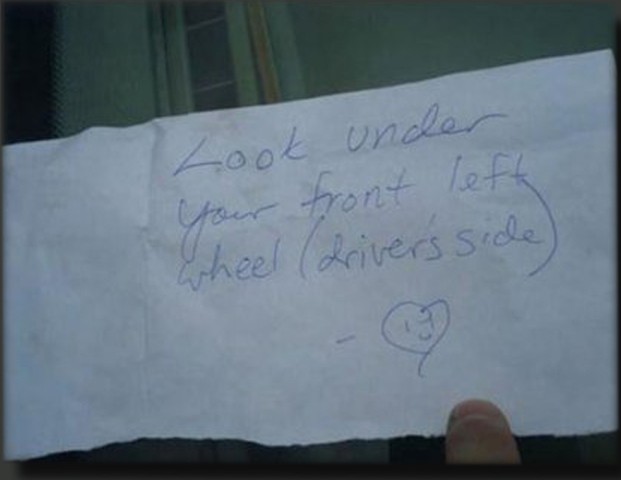 Look under
your front left
wheel (driver's side)
-